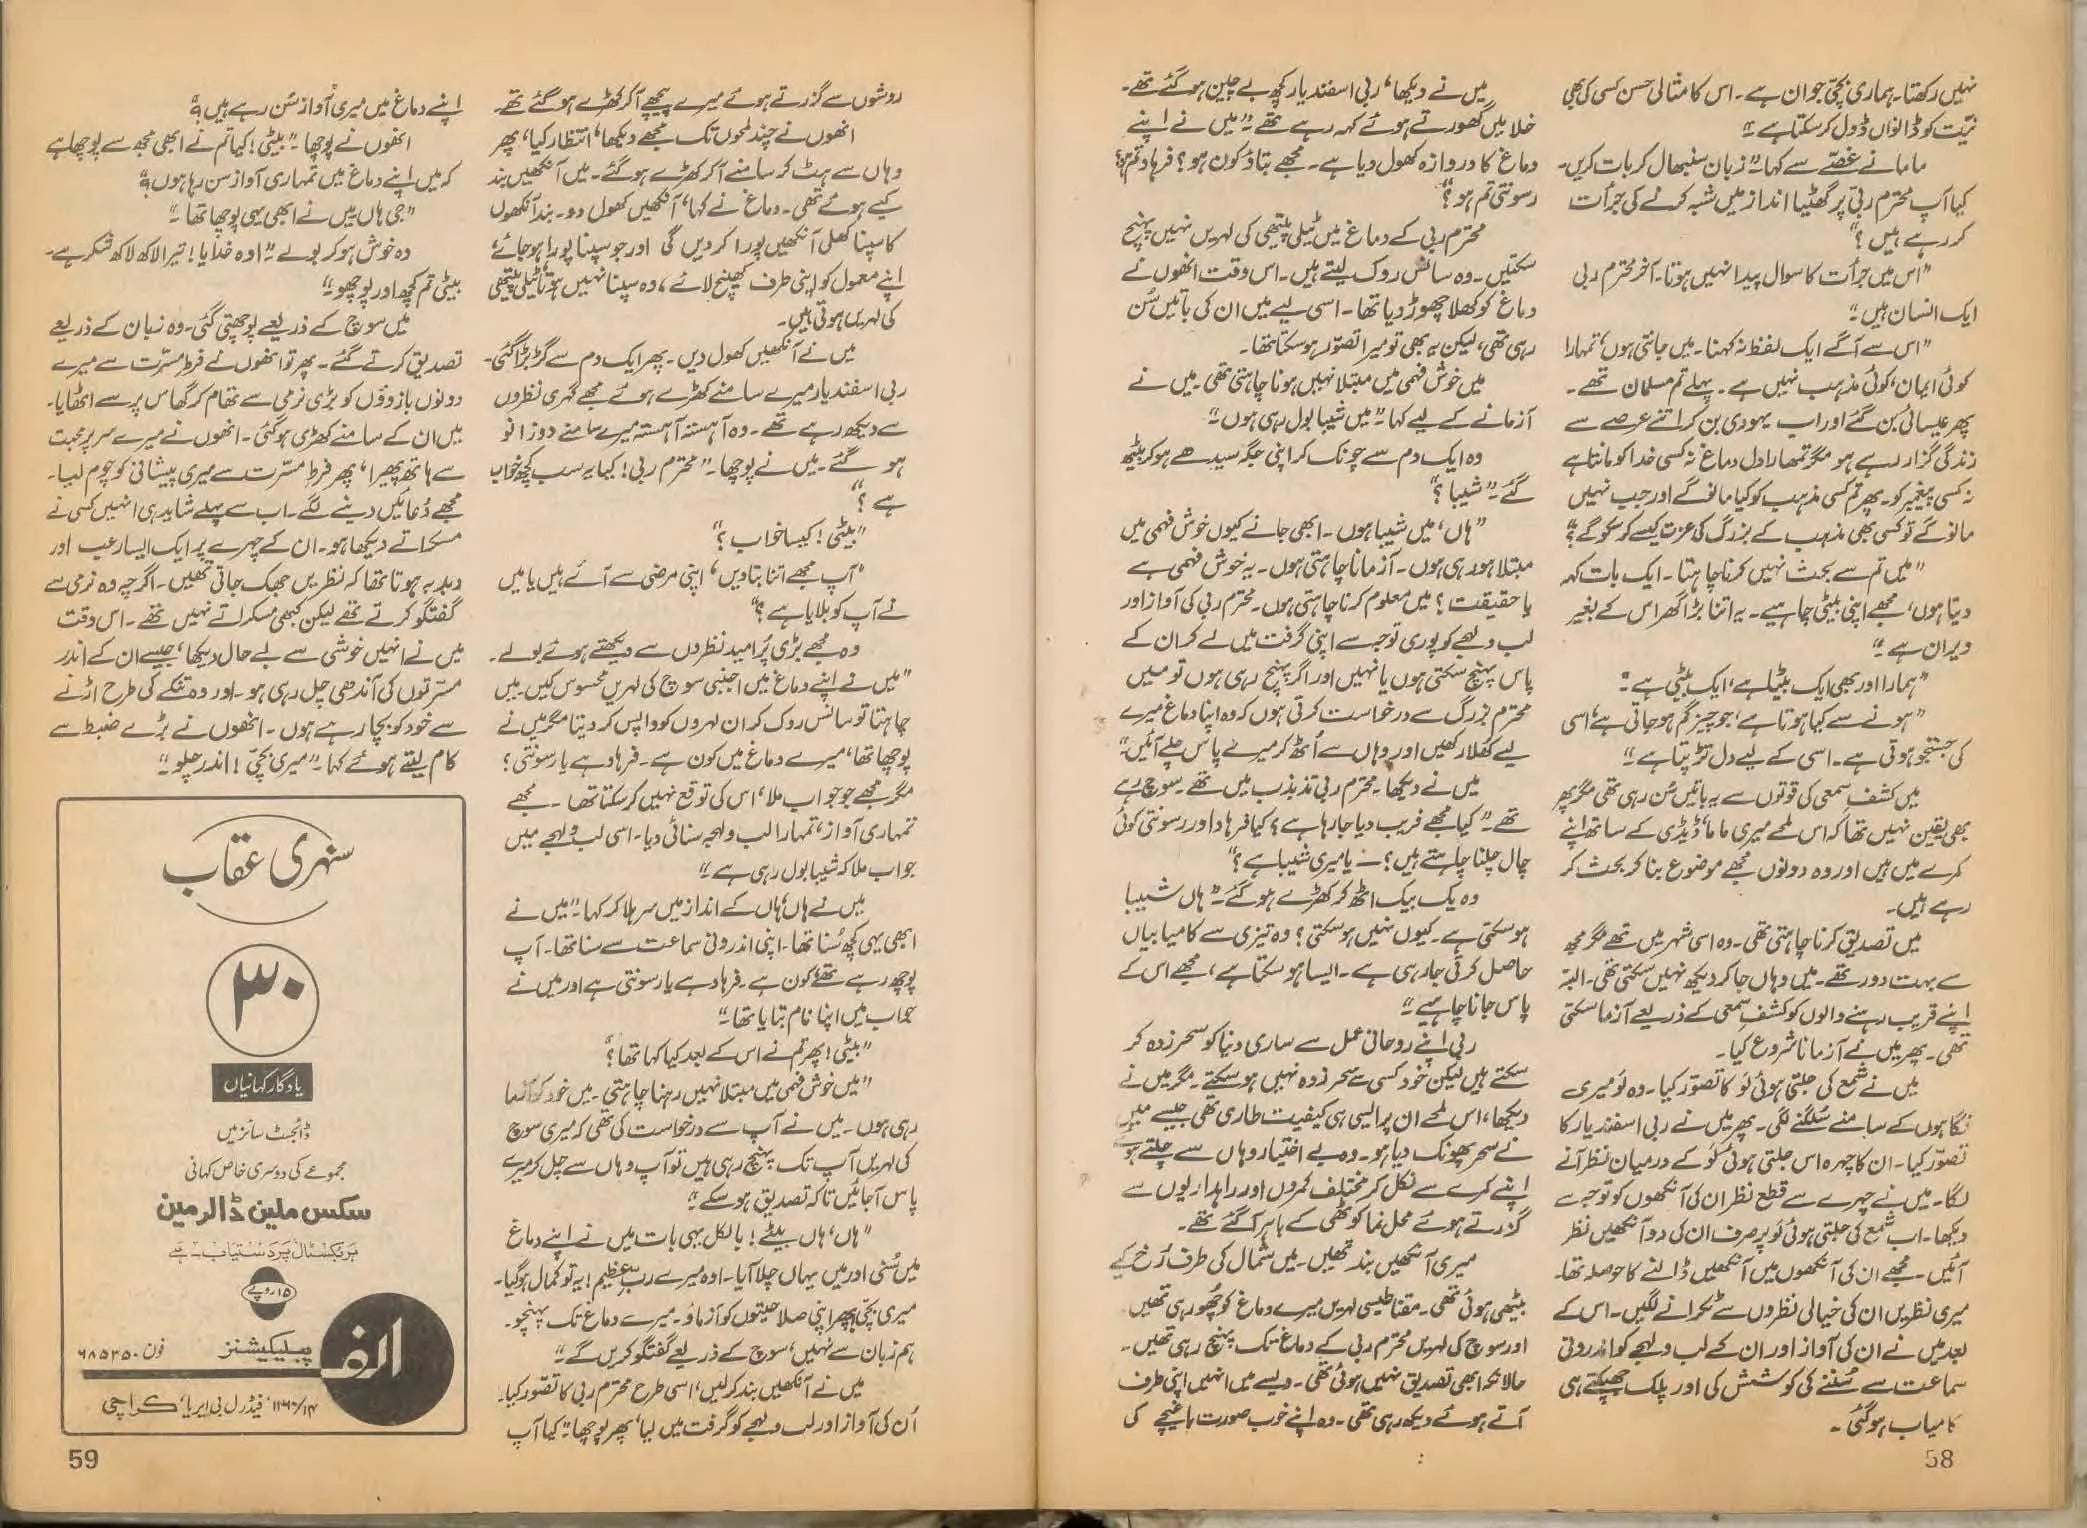 نہیں رکھتا۔ ہماری بچّی جوان ہے۔ اس کا مثالی حسن کسی کی بھی
نیّت کو ڈانواں ڈول کر سکتا ہے“
ماما نے غصّے سے کہا ”زبان سنبھال کر بات کریں۔
کیا آپ محترم ربّی پر گھٹیا انداز میں شبہ کرنے کی جرأت
کر رہے ہیں؟“
”اس میں جرأت کا سوال پیدا نہیں ہوتا۔ آخر محترم ربی
ایک انسان ہیں“
”اس سے آگے ایک لفظ نہ کہنا۔ میں جانتی ہوں، تمہارا
کوئی ایمان، کوئی مذہب نہیں ہے۔ پہلے تم مسلمان تھے۔
پھر عیسائی بن گئے اور اب یہودی بن کر اتنے عرصے سے
زندگی گزار رہے ہو مگر تمہارا دل دماغ نہ کسی خدا کو مانتا ہے
نہ کسی پیغمبر کو۔ پھر تم کسی مذہب کو کیا مانو گے اور جب نہیں
مانو گے تو کسی بھی مذہب کے بزرگ کی عزت کیسے کر سکو گے؟“
”میں تم سے بحث نہیں کرنا چاہتا۔ ایک بات کہہ
دیتا ہوں، مجھے اپنی بیٹی چاہیے۔ یہ اتنا بڑا گھر اس کے بغیر
ویران ہے“
”ہمارا اور بھی ایک بیٹا ہے، ایک بیٹی ہے“
”ہونے سے کیا ہوتا ہے، جو چیز گم ہو جاتی ہے، اسی
کی جستجو ہوتی ہے۔ اسی کے لیے دل تڑپتا ہے“
میں کشفِ سمعی کی قوتوں سے یہ باتیں سُن رہی تھی مگر پھر
بھی یقین نہیں تھا کہ اس لمحے میری ماما، ڈیڈی کے ساتھ اپنے
کمرے میں ہیں اور وہ دونوں مجھے موضوع بنا کر بحث کر
رہے ہیں۔
میں تصدیق کرنا چاہتی تھی۔ وہ اسی شہر میں تھے مگر مجھ
سے بہت دور تھے۔ میں وہاں جا کر دیکھ نہیں سکتی تھی۔ البتہ
اپنے قریب رہنے والوں کو کشفِ سمعی کے ذریعے آزما سکتی
تھی۔ پھر میں نے آزمانا شروع کیا۔
میں نے شمع کی جلتی ہوئی لَو کا تصوّر کیا۔ وہ لَو میری
نگاہوں کے سامنے سُلگنے لگی۔ پھر میں نے ربی اسفندیار کا
تصوّر کیا۔ ان کا چہرہ اس جلتی ہوئی لَو کے درمیان نظر آنے
لگا۔ میں نے چہرے سے قطع نظر ان کی آنکھوں کو توجہ سے
دیکھا۔ اب شمع کی جلتی ہوئی لَو پر صرف ان کی دو آنکھیں نظر
آئیں۔ مجھے ان کی آنکھوں میں آنکھیں ڈالنے کا حوصلہ تھا۔
میری نظریں ان کی خیالی نظروں سے ٹکرانے لگیں۔ اس کے
بعد میں نے ان کی آواز اور ان کے لب و لہجے کو اندرونی
سماعت سے سُننے کی کوشش کی اور پلک جھپکتے ہی
کامیاب ہو گئی۔
میں نے دیکھا، ربی اسفندیار کچھ بے چین ہو گئے تھے۔
خلا میں گھورتے ہوئے کہہ رہے تھے ”میں نے اپنے
دماغ کا دروازہ کھول دیا ہے۔ مجھے بتاؤ کون ہو؟ فرہاد تم ہو؟
رسونتی تم ہو؟“
محترم ربی کے دماغ میں ٹیلی پیتھی کی لہریں نہیں پہنچ
سکتیں۔ وہ سانس روک لیتے ہیں۔ اس وقت انھوں نے
دماغ کو کھلا چھوڑ دیا تھا۔ اسی لیے میں ان کی باتیں سُن
رہی تھی، لیکن یہ بھی تو میرا تصوّر ہو سکتا تھا۔
میں خوش فہمی میں مبتلا نہیں ہونا چاہتی تھی۔ میں نے
آزمانے کے لیے کہا ”میں شیبا بول رہی ہوں“
وہ ایک دم سے چونک کر اپنی جگہ سیدھے ہو کر بیٹھ
گئے ”شیبا؟“
”ہاں، میں شیبا ہوں۔ ابھی جانے کیوں خوش فہمی میں
مبتلا ہو رہی ہوں۔ آزمانا چاہتی ہوں۔ یہ خوش فہمی ہے
یا حقیقت؟ میں معلوم کرنا چاہتی ہوں۔ محترم ربی کی آواز اور
لب و لہجے کو پوری توجہ سے اپنی گرفت میں لے کر ان کے
پاس پہنچ سکتی ہوں یا نہیں اور اگر پہنچ رہی ہوں تو میں
محترم بزرگ سے درخواست کرتی ہوں کہ وہ اپنا دماغ میرے
لیے کھلا رکھیں اور وہاں سے اُٹھ کر میرے پاس چلے آئیں“
میں نے دیکھا۔ محترم ربی تذبذب میں تھے۔ سوچ رہے
تھے ”کیا مجھے فریب دیا جا رہا ہے؟ کیا فرہاد اور رسونتی کوئی
چال چلنا چاہتے ہیں؟ — یا میری شیبا ہے؟“
وہ یک بیک اٹھ کر کھڑے ہو گئے ”ہاں شیبا
ہو سکتی ہے۔ کیوں نہیں ہو سکتی؟ وہ تیزی سے کامیابیاں
حاصل کرتی جا رہی ہے۔ ایسا ہو سکتا ہے، مجھے اس کے
پاس جانا چاہیے“
ربی اپنے روحانی عمل سے ساری دنیا کو سحر زدہ کر
سکتے ہیں لیکن خود کسی سے سحر زدہ نہیں ہو سکتے۔ مگر میں نے
دیکھا، اس لمحے ان پر ایسی ہی کیفیت طاری تھی جیسے میں
نے سحر پھونک دیا ہو۔ وہ بے اختیار وہاں سے چلتے ہوئے
اپنے کمرے سے نکل کر مختلف کمروں اور راہداریوں سے
گزرتے ہوئے محل نما کوٹھی کے باہر آ گئے تھے۔
میری آنکھیں بند تھیں۔ میں شمال کی طرف رُخ کیے
بیٹھی ہوئی تھی۔ مقناطیسی لہریں میرے دماغ کو چھو رہی تھیں
اور سوچ کی لہریں محترم ربی کے دماغ تک پہنچ رہی تھیں۔
حالانکہ ابھی تصدیق نہیں ہوئی تھی۔ ویسے میں انہیں اپنی طرف
آتے ہوئے دیکھ رہی تھی۔ وہ اپنے خوب صورت باغیچے کی
58
روشوں سے گزرتے ہوئے میرے پیچھے آ کر کھڑے ہو گئے تھے۔
انھوں نے چند لمحوں تک مجھے دیکھا، انتظار کیا، پھر
وہاں سے ہٹ کر سامنے آ کر کھڑے ہو گئے۔ میں آنکھیں بند
کیے ہوئے تھی۔ دماغ نے کہا، آنکھیں کھول دو۔ بند آنکھوں
کا سپنا کھلی آنکھیں پورا کر دیں گی اور جو سپنا پورا ہو جائے،
اپنے معمول کو اپنی طرف کھینچ لائے، وہ سپنا نہیں ہوتا، ٹیلی پیتھی
کی لہریں ہوتی ہیں۔
میں نے آنکھیں کھول دیں۔ پھر ایک دم سے گڑبڑا گئی۔
ربی اسفندیار میرے سامنے کھڑے ہوئے مجھے گہری نظروں
سے دیکھ رہے تھے۔ وہ آہستہ آہستہ میرے سامنے دوزانو
ہو گئے۔ میں نے پوچھا۔ ”محترم ربی! کیا یہ سب کچھ خواب
ہے؟“
”بیٹی! کیسا خواب؟“
”آپ مجھے اتنا بتا دیں، اپنی مرضی سے آئے ہیں یا میں
نے آپ کو بلایا ہے؟“
وہ مجھے بڑی پُرامید نظروں سے دیکھتے ہوئے بولے۔
”میں نے اپنے دماغ میں اجنبی سوچ کی لہریں محسوس کیں۔ میں
چاہتا تو سانس روک کر ان لہروں کو واپس کر دیتا مگر میں نے
پوچھا تھا، میرے دماغ میں کون ہے۔ فرہاد ہے یا رسونتی؟
مگر مجھے جو جواب ملا، اس کی توقع نہیں کر سکتا تھا۔ مجھے
تمہاری آواز، تمہارا لب و لہجہ سنائی دیا۔ اسی لب و لہجے میں
جواب ملا کہ شیبا بول رہی ہے“
میں نے ہاں، ہاں کے انداز میں سر ہلا کر کہا ”میں نے
ابھی یہی کچھ سُنا تھا۔ اپنی اندرونی سماعت سے سنا تھا۔ آپ
پوچھ رہے تھے، کون ہے۔ فرہاد ہے یا رسونتی ہے اور میں نے
جواب میں اپنا نام بتایا تھا“
”بیٹی! پھر تم نے اس کے بعد کیا کہا تھا؟“
”میں خوش فہمی میں مبتلا نہیں رہنا چاہتی۔ میں خود کو آزما
رہی ہوں۔ میں نے آپ سے درخواست کی تھی کہ میری سوچ
کی لہریں آپ تک پہنچ رہی ہیں تو آپ وہاں سے چل کر میرے
پاس آ جائیں تاکہ تصدیق ہو سکے“
”ہاں، ہاں بیٹے! بالکل یہی بات میں نے اپنے دماغ
میں سُنی اور میں یہاں چلا آیا۔ اوہ میرے ربِ عظیم! یہ تو کمال ہو گیا۔
میری بچّی! پھر اپنی صلاحیتوں کو آزماؤ۔ میرے دماغ تک پہنچو۔
ہم زبان سے نہیں، سوچ کے ذریعے گفتگو کریں گے“
میں نے آنکھیں بند کر لیں، اسی طرح محترم ربی کا تصوّر کیا۔
اُن کی آواز اور لب و لہجے کو گرفت میں لیا، پھر پوچھا ”کیا آپ
اپنے دماغ میں میری آواز سُن رہے ہیں؟“
انھوں نے پوچھا۔ ”بیٹی! کیا تم نے ابھی مجھ سے پوچھا ہے
کہ میں اپنے دماغ میں تمہاری آواز سن رہا ہوں؟“
”جی ہاں میں نے ابھی یہی پوچھا تھا“
وہ خوش ہو کر بولے ”اوہ خدایا! تیرا لاکھ لاکھ شکر ہے۔
بیٹی تم کچھ اور پوچھو“
میں سوچ کے ذریعے پوچھتی گئی۔ وہ زبان کے ذریعے
تصدیق کرتے گئے۔ پھر تو انھوں نے فرطِ مسرّت سے میرے
دونوں بازوؤں کو بڑی نرمی سے تھام کر گھاس پر سے اٹھایا۔
میں ان کے سامنے کھڑی ہو گئی۔ انھوں نے میرے سر پر محبت
سے ہاتھ پھیرا، پھر فرطِ مسّرت سے میری پیشانی کو چوم لیا۔
مجھے دُعائیں دینے لگے۔ اب سے پہلے شاید ہی انہیں کسی نے
مسکراتے دیکھا ہو۔ ان کے چہرے پر ایک ایسا رعب اور
دبدبہ ہوتا تھا کہ نظریں جھک جاتی تھیں۔ اگرچہ وہ نرمی سے
گفتگو کرتے تھے لیکن کبھی مسکراتے نہیں تھے۔ اس وقت
میں نے انہیں خوشی سے بے حال دیکھا، جیسے ان کے اندر
مسّرتوں کی آندھی چل رہی ہو۔ اور وہ تنکے کی طرح اڑنے
سے خود کو بچا رہے ہوں۔ انھوں نے بڑے ضبط سے
کام لیتے ہوئے کہا۔ ”میری بچّی! اندر چلو“
سنہری عقاب
۳۰
یادگار کہانیاں
ڈائجسٹ سائز میں
مجموعے کی دوسری خاص کہانی
سکس ملین ڈالر مین
ہر بکسٹال پر دستیاب ہے
۱۵ روپے
الف
پبلیکیشنز
فون ۶۸۵۳۵۰
۱۱۶۰/۱۴، فیڈرل بی ایریا، کراچی
59